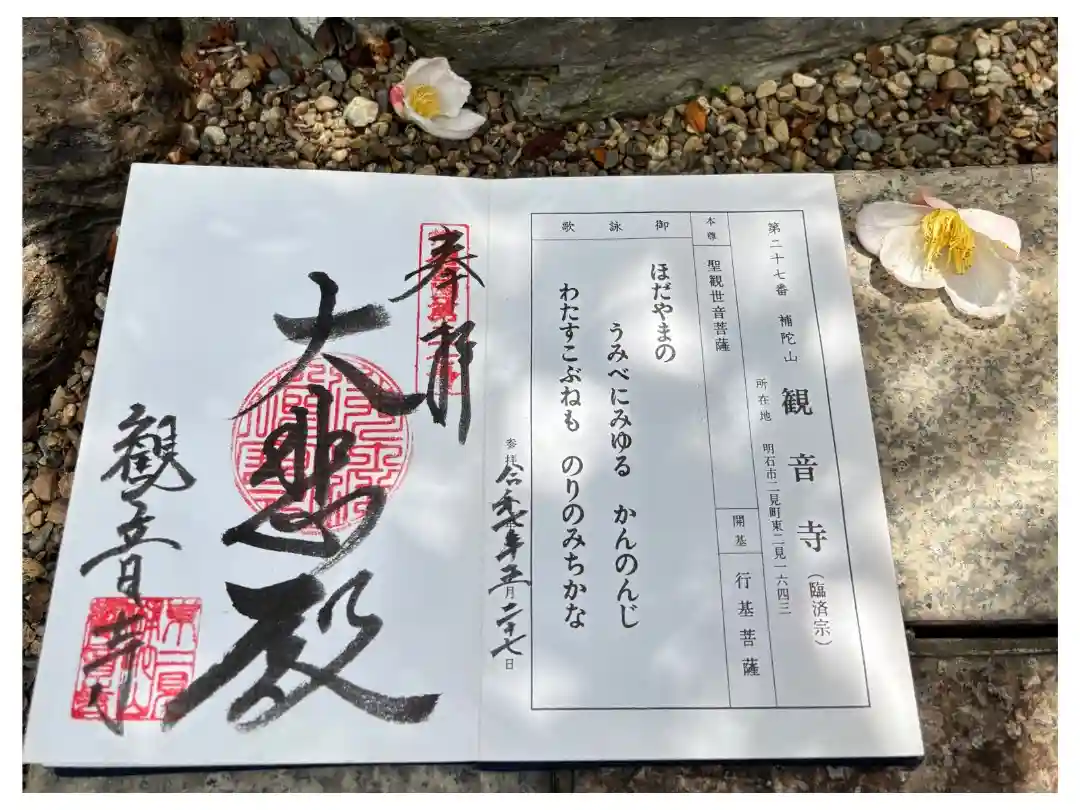 第二十七番 補陀山 観音寺(臨済宗)
所在地 明石市二見町東二見一六四三
本尊 聖観世音菩薩
開基 行基菩薩
御詠歌
ほだやまの
うみべにみゆる かんのんじ
わたすこぶねも のりのみちかな
参拝 令和七年五月二十七日
奉拝
大悲殿
観音寺